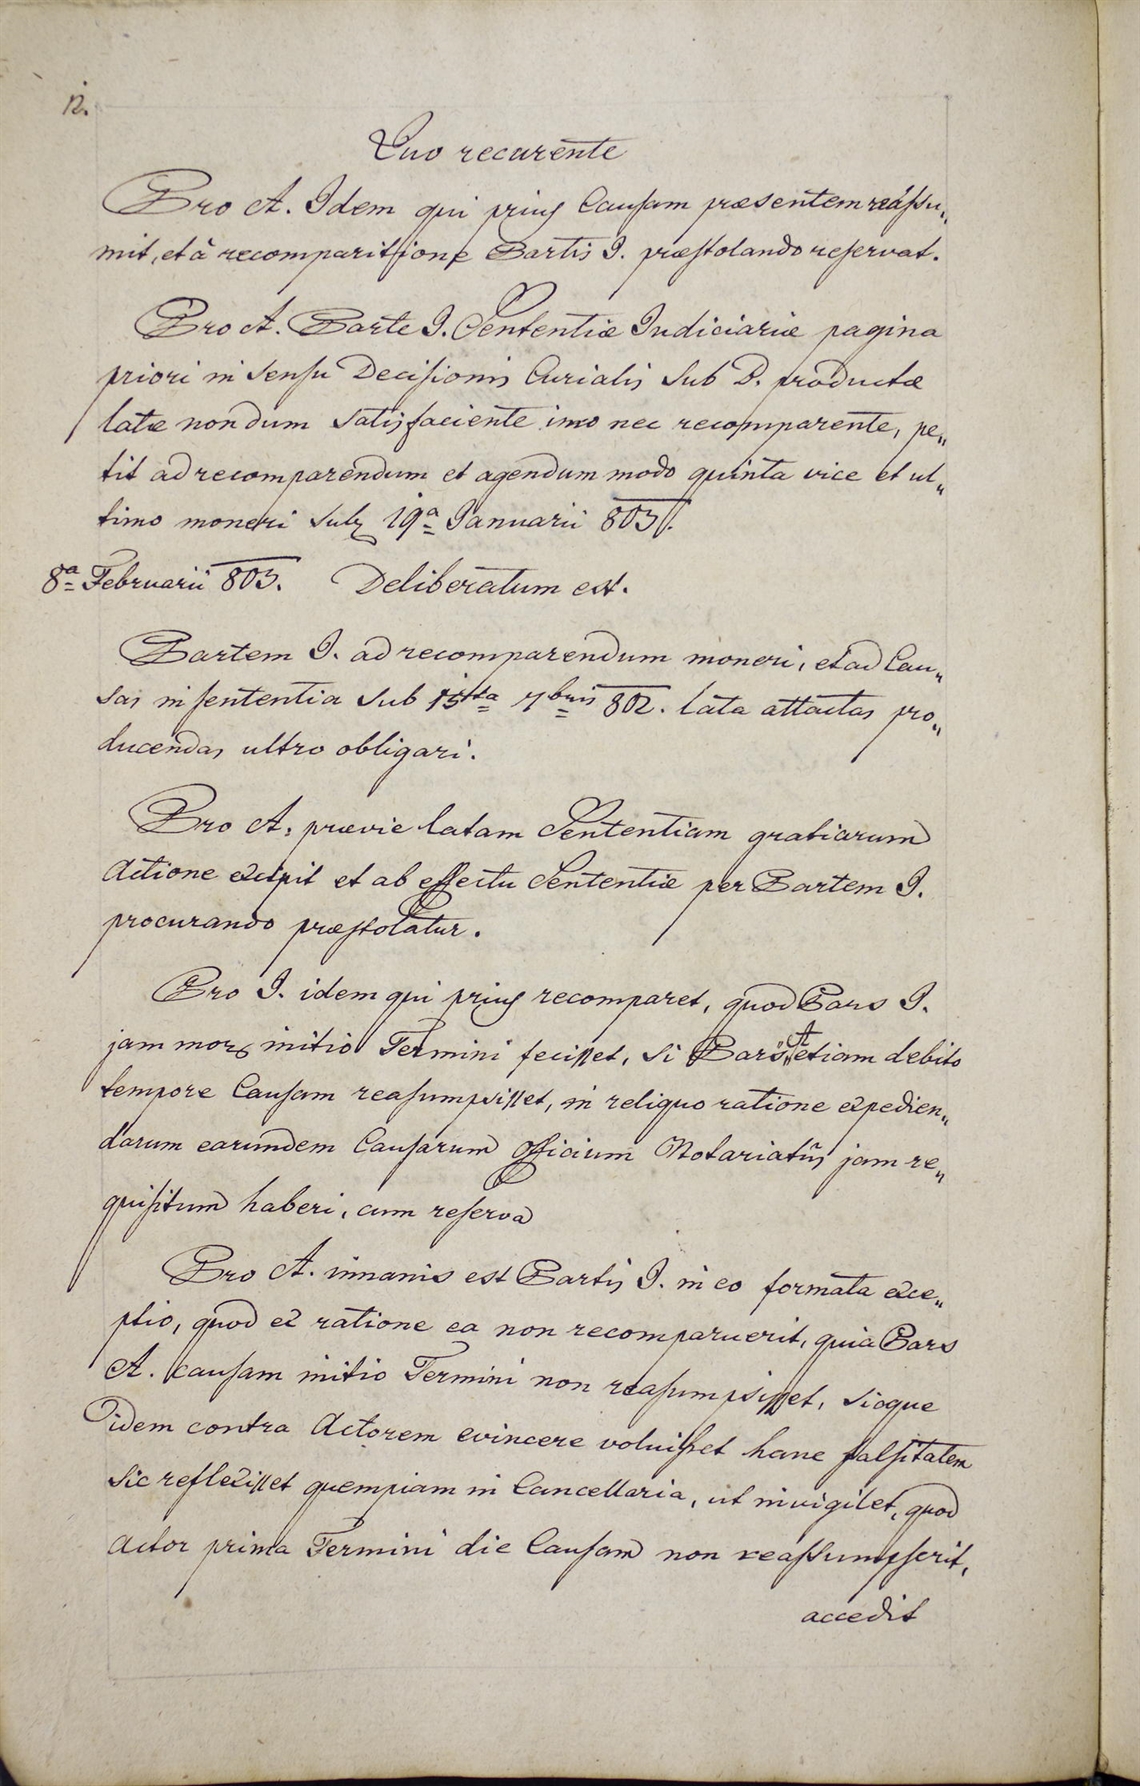 12.
Quo recurente
Pro A. Idem qui prius Causam præsentem reássu„
mit, et à recomparitione Partis I. præstolando reservat.
Pro A. Parte I. Sententiæ Iudiciariæ pagina
priori in sensu Decisionis Curialis sub D. productæ
latæ nondum satisfaciente imo nec recomparente, pe„
tit ad recomparendum et agendum modo quinta vice et ul„
timo moneri 19a Ianuarii 803.
8a Februarii 803. Deliberatum est.
Partem I. ad recomparendum moneri, et ad Cau„
sas in sententia sub 15ta 7bris 802. lata attactas pro„
ducendas ultro obligari.
Pro A. prævie latam Sententiam gratiarum
Actione excipit et ab effectu Sententiæ per Partem I.
procurando præstolatur.
Pro I. idem qui prius recomparet, quod Pars I.
jam mox initio Termini fecisset, si Pars A etiam debito
tempore Causam reasumpsisset, in reliquo ratione expedien„
darum earundem Causarum Officium Notariatûs jam re„
quisitum haberi, cum reserva
Pro A. inmanis est Partis I. in eo formata exce„
ptio, quod ex ratione ea non recomparuerit, quia Pars
A. causam initio Termini non reasumpsisset, sicque
idem contra Actorem evincere voluisset hanc falsitatem
sic reflexisset quempiam in Cancellaria, ut invigilet, quod
Actor prima Termini die Causam non reassumpserit,
accedit